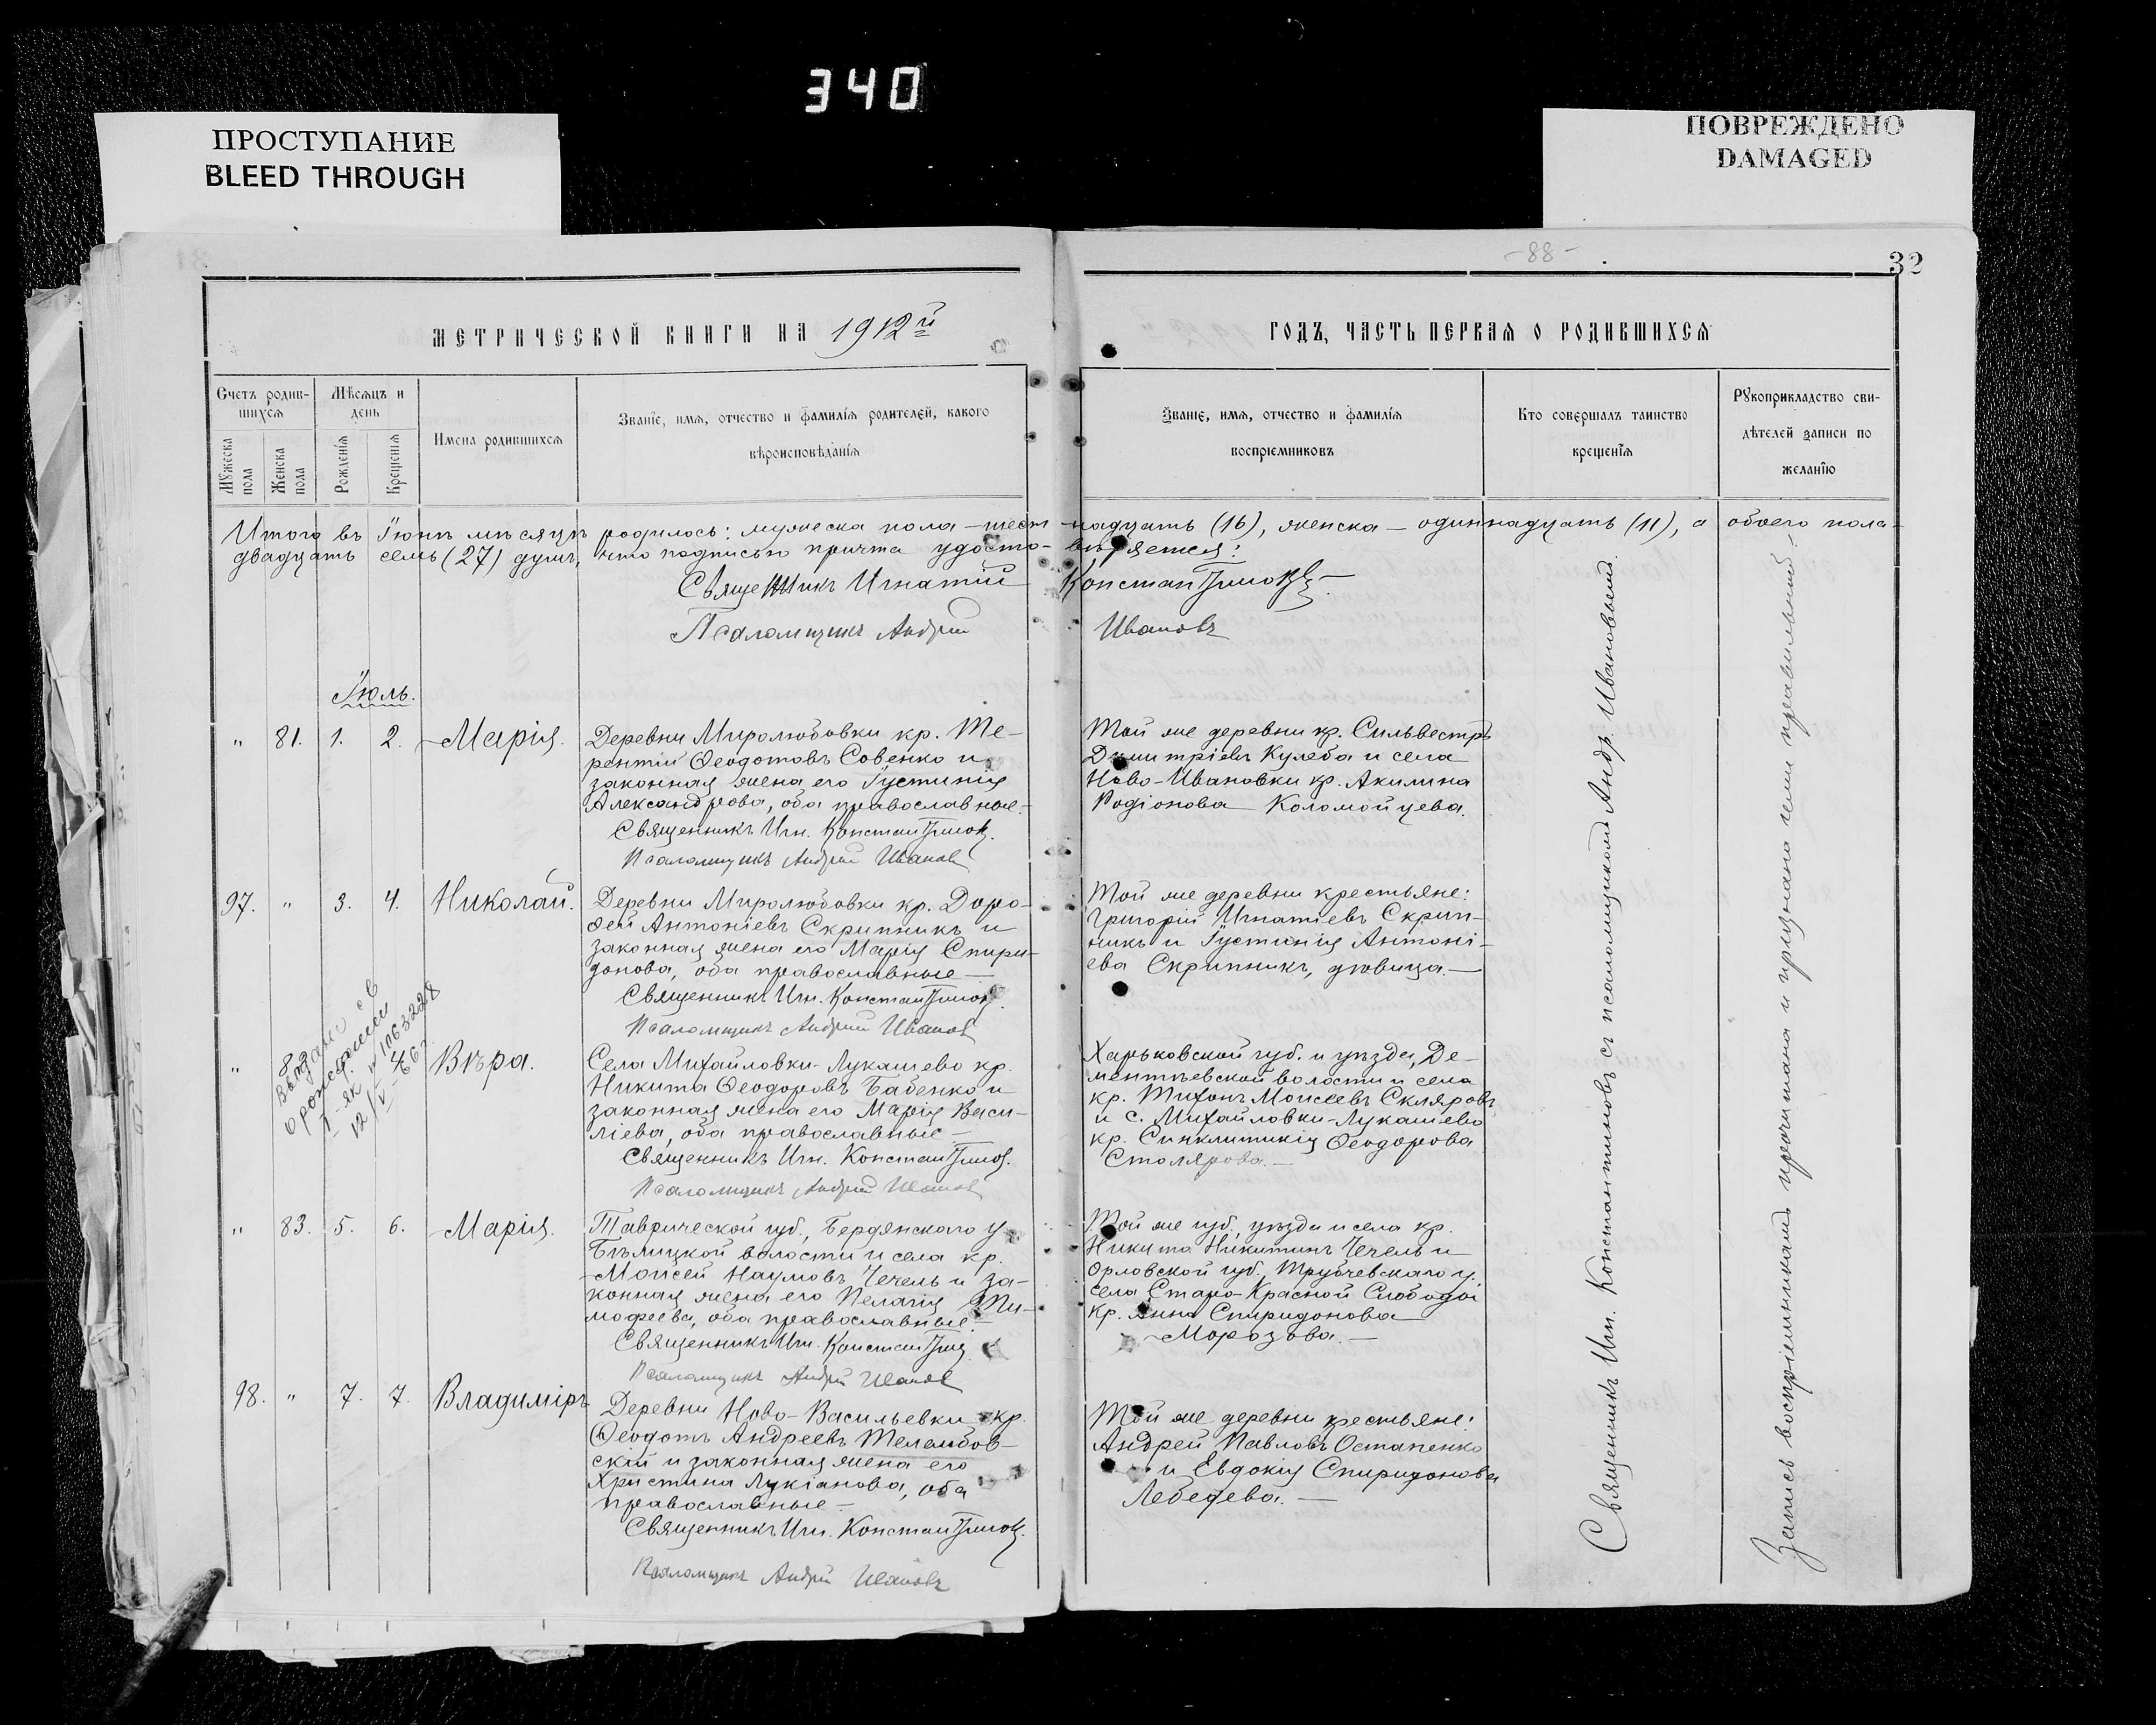 340
ПРОСТУПАНИЕ
BLEED THROUGH
ПОВРЕЖДЕНО
DAMAGED
-88-
32
МЕТРИЧЕСКОЙ КНИГИ НА 1912й
ГОДЪ, ЧАСТЬ ПЕРВАЯ О РОДИВШИХСЯ
Счетъ родив-
шихся
Мужеска пола
Женска пола
Мѣсяцъ и
день
Рожденія
Крещенія
Имена родившихся
Званіе, имя, отчество и фамилія родителей, какого
вѣроисповѣданія
Званіе, имя, отчество и фамилія
воспріемниковъ
Кто совершалъ таинство
крещенія
Рукоприкладство сви-
дѣтелей записи по
желанію
Итого въ Іюнѣ мѣсяцѣ родилось: мужеска пола – шест-надцать (16), женска – одиннадцать (11), а обоего пола-
двадцать семь (27) душъ, что подписью причта удосто-вѣряется:
Священникъ Игнатій Константиновъ
Псаломщикъ Андрей Ивановъ
Іюль.
" 81. 1. 2. Марія.
Деревни Миролюбовки кр. Те-
рентій Ѳеодотовъ Совенко и
законная жена его Іустинія
Александрова, оба православные.
Священникъ Игн. Константиновъ.
Псаломщикъ Андрей Ивановъ
Той же деревни кр. Сильвестръ
Димитріевъ Кулеба и села
Ново-Ивановки кр. Акилина
Родіонова Коломойцева.
97. " 3. 4. Николай.
Деревни Миролюбовки кр. Доро-
фей Антоніевъ Скрипникъ и
законная жена его Марія Спири-
донова, оба православные —
Священникъ Игн. Константиновъ.
Псаломщикъ Андрей Ивановъ
Той же деревни крестьяне:
Григорій Игнатіевъ Скрип-
никъ и Іустинія Антоні-
ева Скрипникъ, дѣвица.—
" Вѣра.
Выдано св
о рождении
12/V-
Села Михайловки-Лукашево кр.
Никита Ѳеодоровъ Бабенко и
законная жена его Марія Васи-
ліева, оба православные —
Священникъ Игн. Константиновъ.
Псаломщикъ Андрей Ивановъ
Харьковской губ. и уѣзда, Де-
ментѣевской волости и села
кр. Тихонъ Моисеевъ Скляровъ
и с. Михайловки-Лукашево
кр. Синклитикія Ѳеодорова
Столярова.—
" 83. 5. 6. Марія.
Таврической губ., Бердянскаго у
Бѣлицкой волости и села кр.
Моисей Наумовъ Чечель и за-
конная жена его Пелагія Ти-
мофеева, оба православные.—
Священникъ Игн. Константиновъ
Псаломщикъ Андрей Ивановъ
Той же губ., уѣзда и села кр.
Никита Никитинъ Чечель и
Орловской губ. Трубчевскаго у.
села Старо-Красной Слободы
кр. Анна Спиридонова
Морозова.—
98. " 7. 7. Владиміръ
Деревни Ново-Васильевки кр.
Ѳеодотъ Андреевъ Телембов-
скій и законная жена его
Христина Лукіанова, оба
православные —
Священникъ Игн. Константиновъ.
Псаломщикъ Андрей Ивановъ
Той же деревни крестьяне:
Андрей Павловъ Остапенко
и Евдокія Спиридонова
Лебедева.—
Священникъ Игн. Константиновъ съ псаломщикомъ Андр. Ивановымъ.
Запись воспріемникамъ прочитана и признана ими правильной.